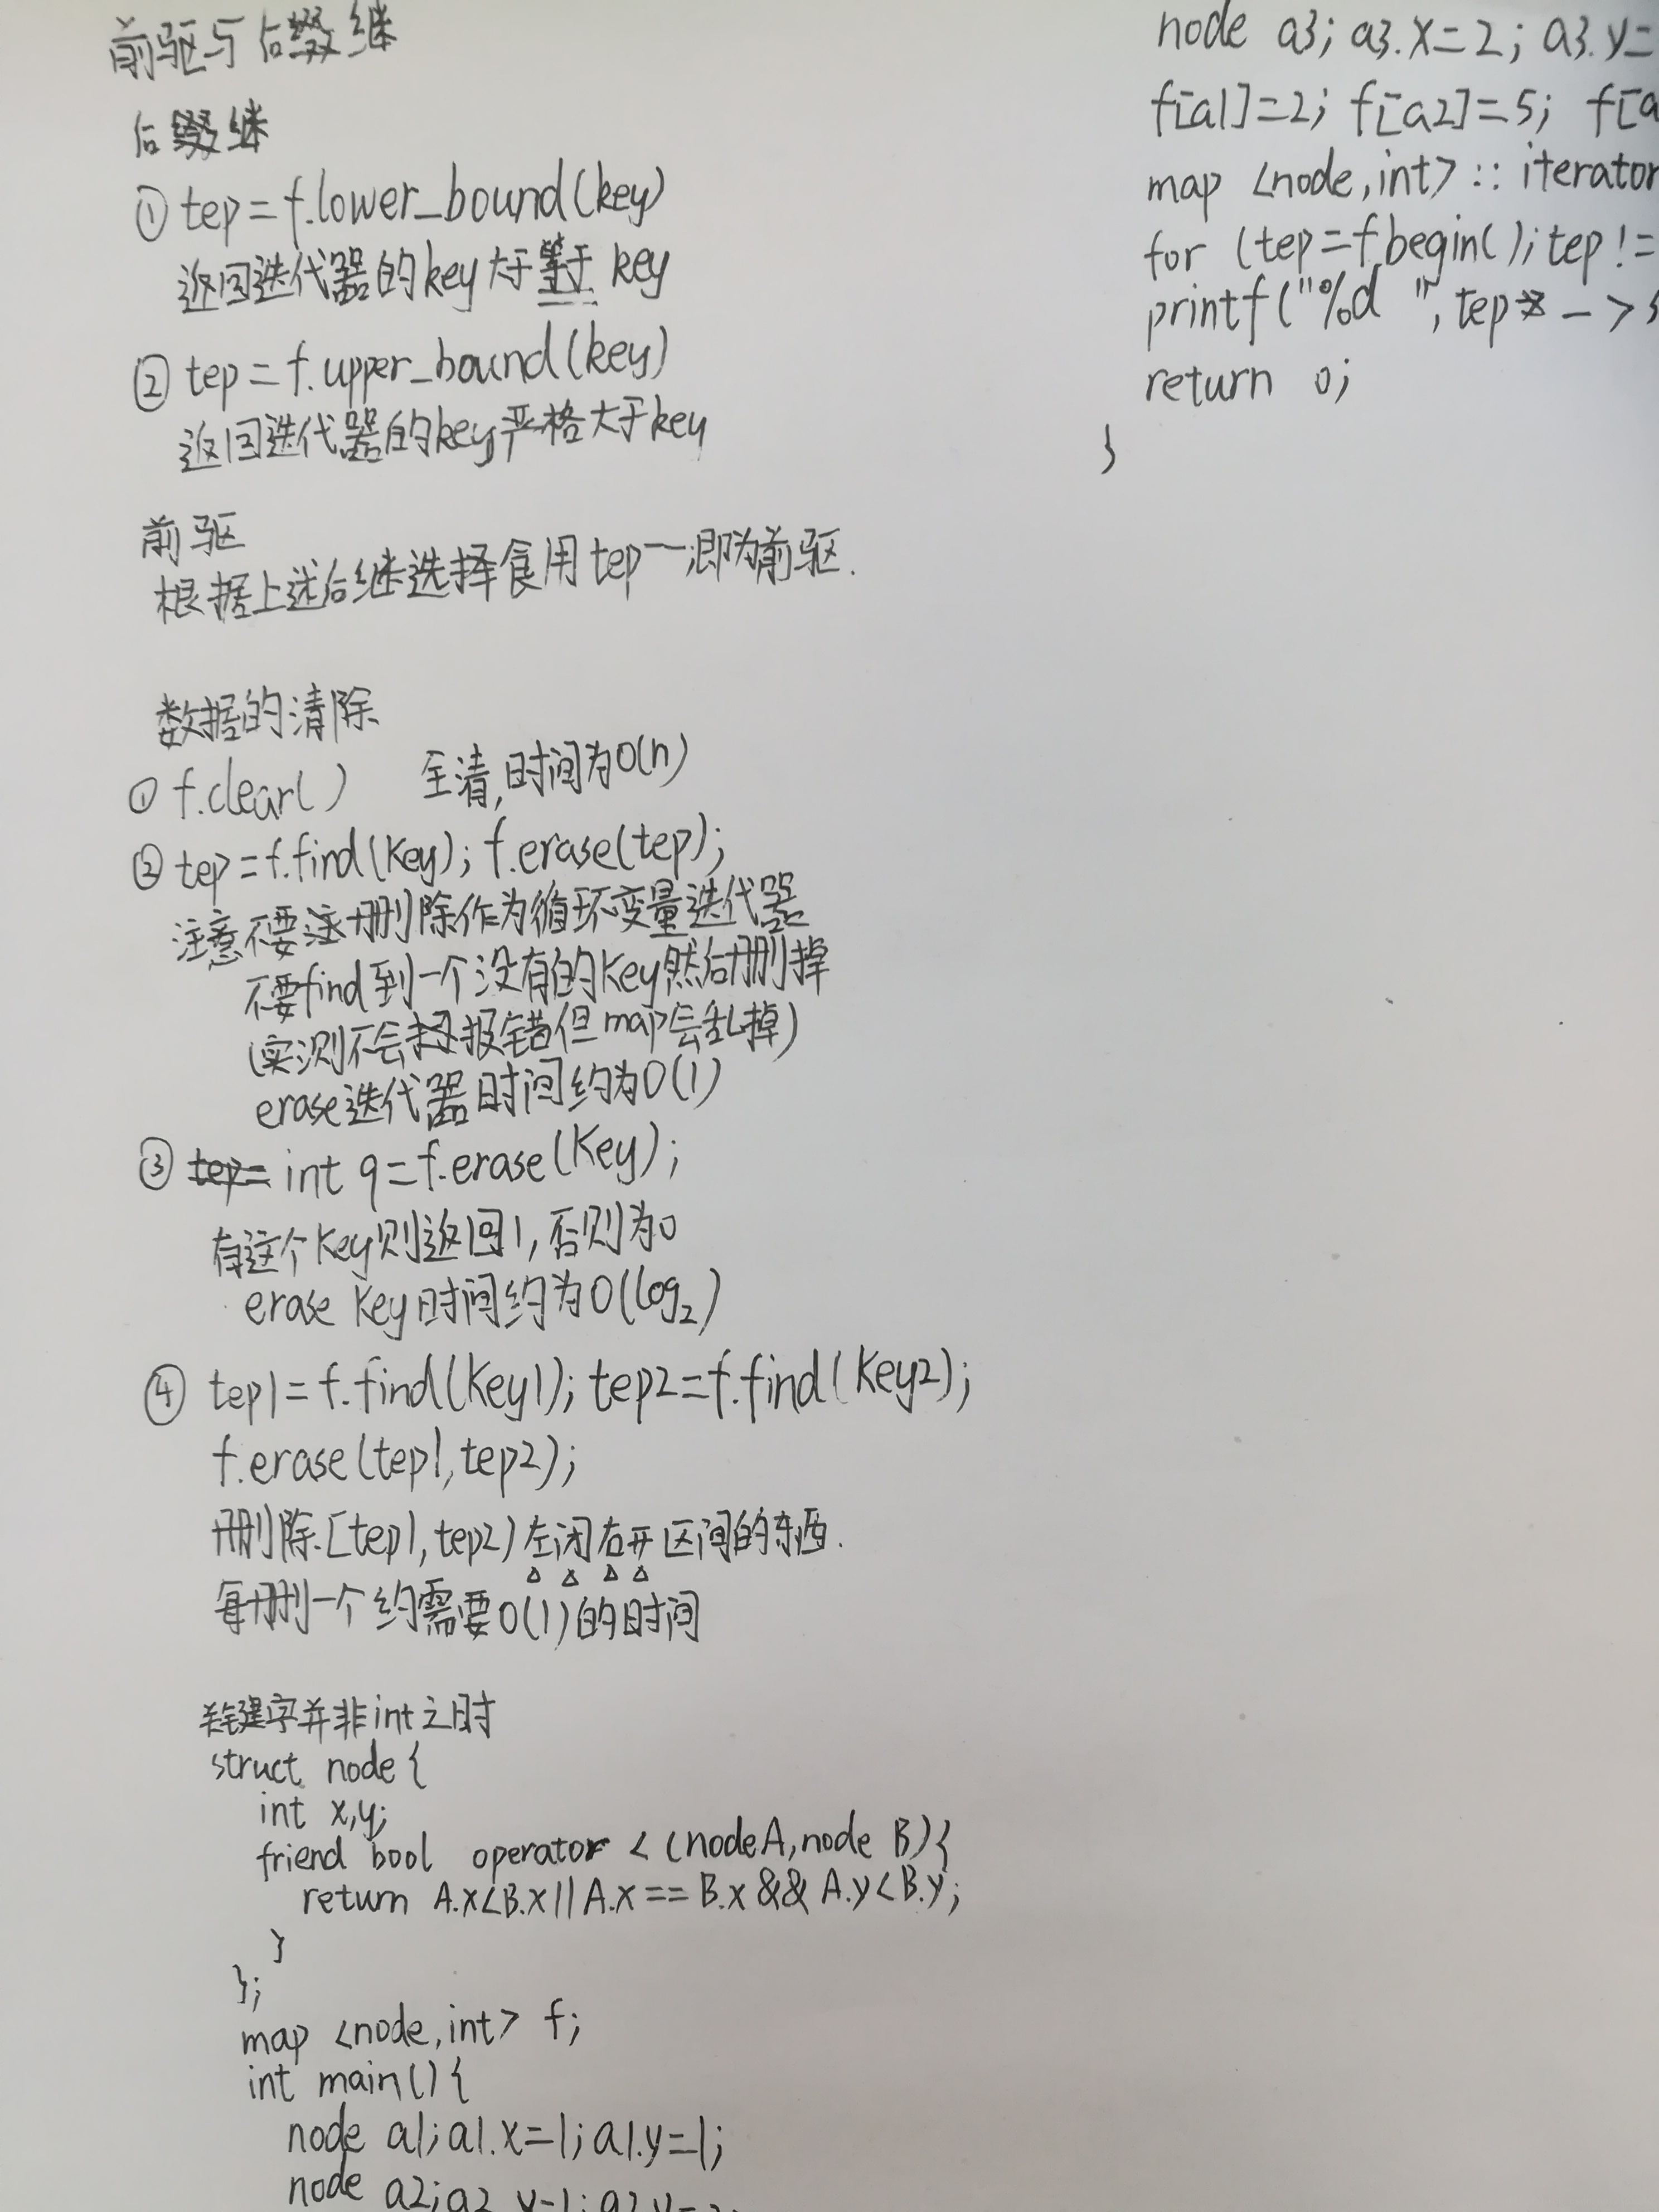 前驱与后继
后继
① tep=f.lower_bound(key)
返回迭代器的key大于等于key
② tep=f.upper_bound(key)
返回迭代器的key严格大于key
前驱
根据上述后继选择食用tep--;即为前驱.
数据的清除
① f.clear() 全清,时间为O(n)
② tep=f.find(Key); f.erase(tep);
注意不要删除作为循环变量迭代器
不要find到一个没有的Key然后删掉
(实测不会报错但map会乱掉)
erase迭代器时间约为O(1)
③ int q=f.erase(Key);
有这个Key则返回1,否则为0
erase Key时间约为O(log₂)
④ tep1=f.find(Key1); tep2=f.find(Key2);
f.erase(tep1,tep2);
删除[tep1,tep2)左闭右开区间的东西.
每删一个约需要O(1)的时间
关键字并非int之时
struct node{
int x,y;
friend bool operator < (node A,node B){
return A.x<B.x||A.x==B.x&&A.y<B.y;
}
};
map <node,int> f;
int main(){
node a1;a1.x=1;a1.y=1;
node a2;a2
node a3; a3.x=2; a3.y=
f[a1]=2; f[a2]=5; f[a
map <node,int> :: iterator
for (tep=f.begin();tep!=
printf("%d ",tep->
return 0;
}